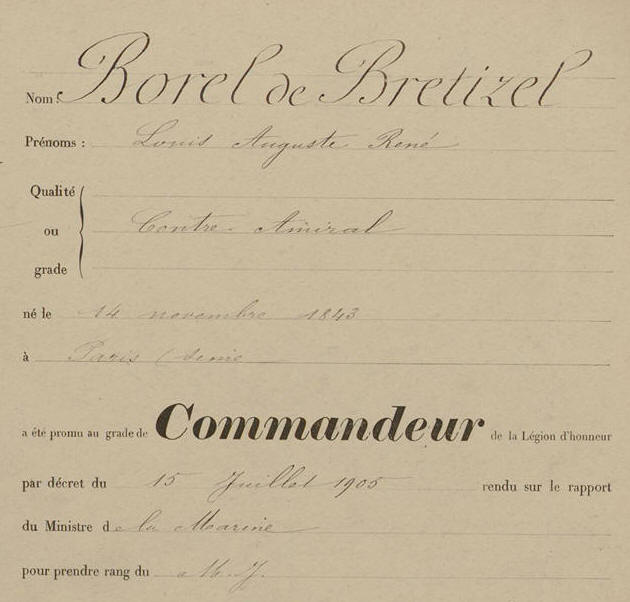 Nom : Borel de Bretizel
Prénoms : Louis Auguste René
Qualité
ou Contre-Amiral
grade
né le 14 novembre 1843
à Paris (Seine
a été promu au grade de Commandeur de la Légion d'honneur
par décret du 15 Juillet 1905 rendu sur le rapport
du Ministre de la Marine
pour prendre rang du M. J.